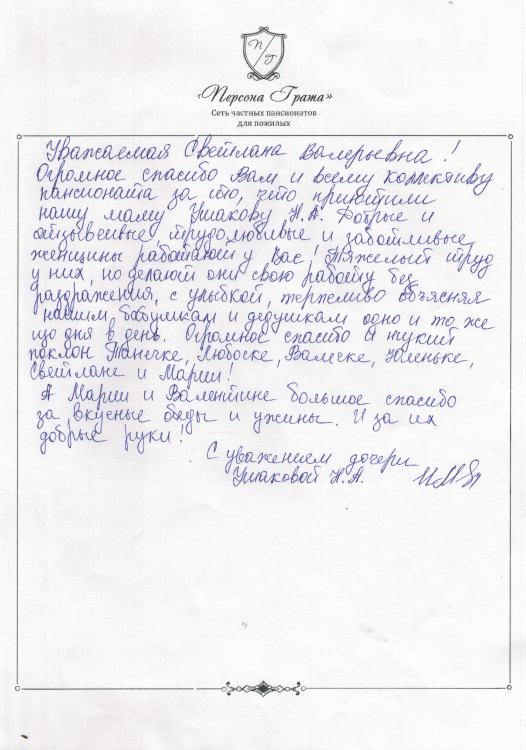 П Г
«Персона Грата»
Сеть частных пансионатов
для пожилых
Уважаемая Светлана Валерьевна!
Огромное спасибо Вам и всему коллективу
пансионата за то, что приютили
нашу маму Ушакову Н.А. Добрые и
отзывчивые трудолюбивые и заботливые
женщины работают у Вас! Тяжелый труд
у них, но делают они свою работу без
раздражения, с улыбкой, терпеливо объясняя
нашим, бабушкам и дедушкам одно и то же
изо дня в день. Огромное спасибо и низкий
поклон Танечке, Любоске, Валеске, Юленьке,
Светлане и Марии!
А Марии и Валентине большое спасибо
за вкусные обеды и ужины. И за их
добрые руки!
С уважением дочери
Ушаковой Н.А.